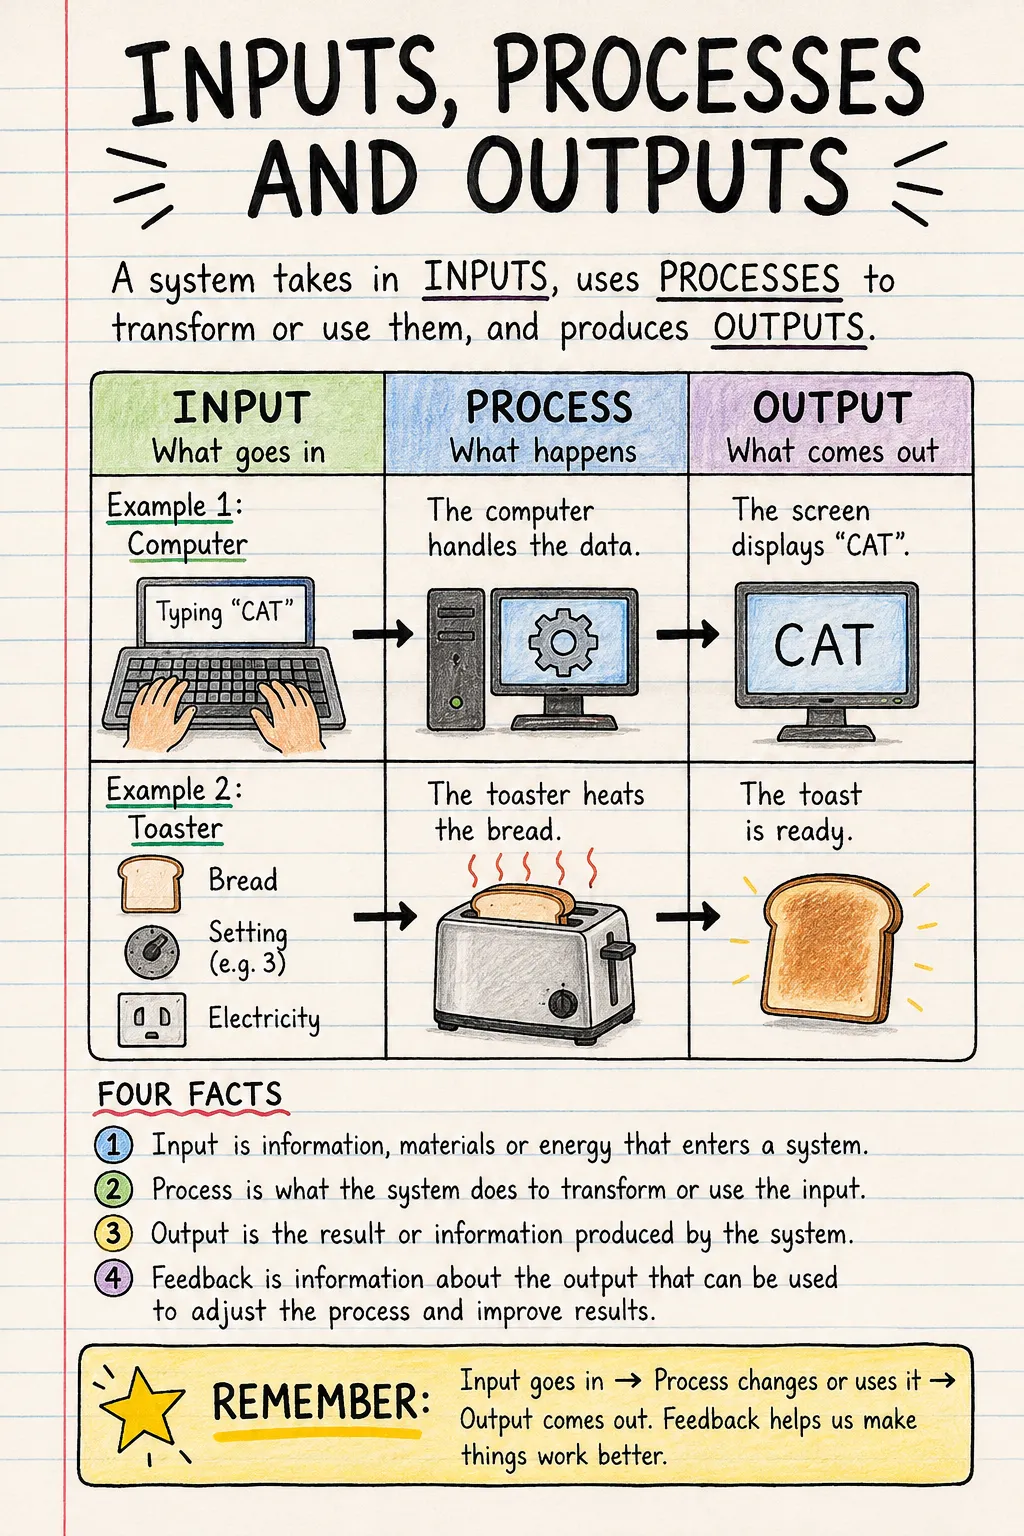 INPUTS, PROCESSES
AND OUTPUTS
A system takes in INPUTS, uses PROCESSES to
transform or use them, and produces OUTPUTS.
INPUT
What goes in
PROCESS
What happens
OUTPUT
What comes out
Example 1:
Computer
Typing “CAT”
The computer
handles the data.
The screen
displays “CAT”.
CAT
Example 2:
Toaster
Bread
Setting
(e.g. 3)
Electricity
The toaster heats
the bread.
The toast
is ready.
FOUR FACTS
1 Input is information, materials or energy that enters a system.
2 Process is what the system does to transform or use the input.
3 Output is the result or information produced by the system.
4 Feedback is information about the output that can be used
to adjust the process and improve results.
REMEMBER:
Input goes in → Process changes or uses it →
Output comes out. Feedback helps us make
things work better.